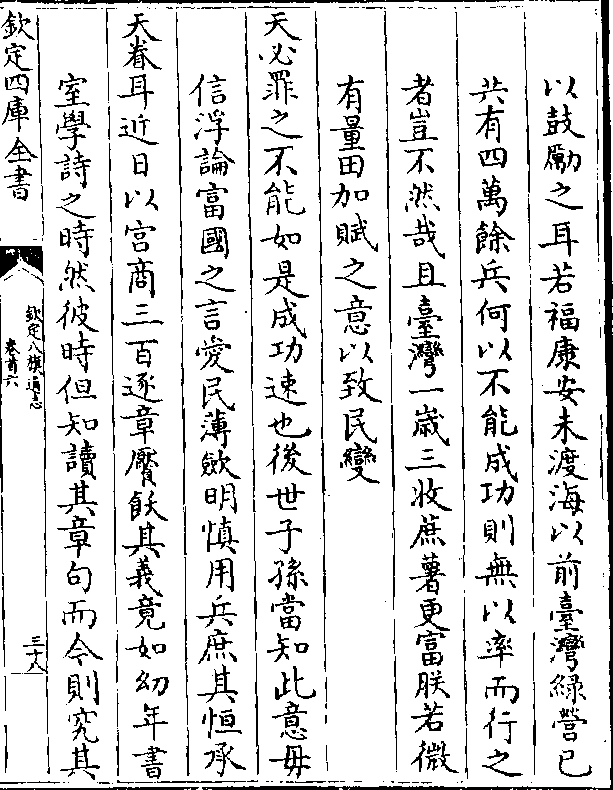 以鼓勵之耳若福康安未渡海以前臺灣綠營已
共有四萬餘兵何以不能成功則無以率而行之
者豈不然哉且臺灣一歲三收蔗薯更富朕若微
有量田加賦之意以致民變
天必罪之不能如是成功速也後世子孫當知此意毋
信浮論富國之言愛民薄斂明慎用兵庶其恒承
天眷耳近日以宮商三百逐章賡飫其義竟如幼年書
室學詩之時然彼時但知讀其章句而今則究其
欽定四庫全書
欽定八旗通志
卷首六
三十八